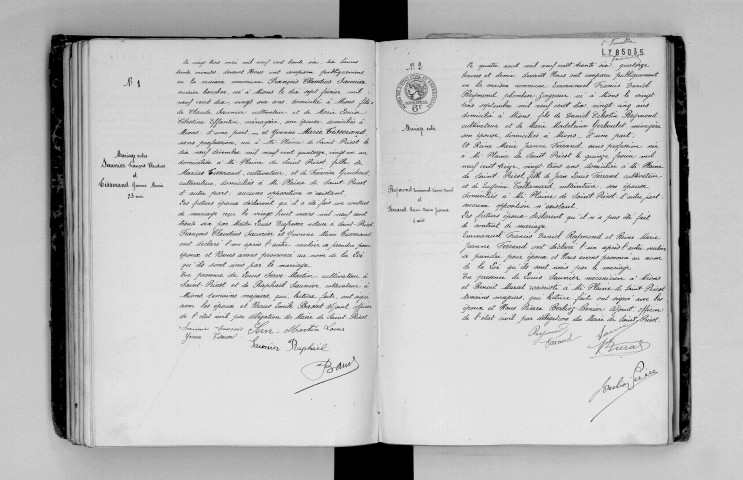 N. 1
Mariage entre
Saunier François Claudius
et
Tisserand Yvonne Marie
23 mai
Le vingt trois mai mil neuf cent trente six
trente minutes devant Nous ont comparu publiquement
en la maison commune François Claudius Saunier
ouvrier boucher né à Mions le dix sept février mil
neuf cent dix vingt six ans, domicilié à Mions fils
de Claude Saunier cultivateur et de Marie Louise
Célestine ménagère, son épouse domiciliés à
Mions d'une part — et Yvonne Marie Tisserand
sans profession, née à Mi-Plaine de Saint Priest le
dix neuf décembre mil neuf cent quatorze, vingt un an
domiciliée à Mi-Plaine de Saint Priest fille de
Marius Tisserand, cultivateur, et de Francine
cultivateurs domiciliés à Mi-Plaine de Saint-Priest
d'autre part, aucune opposition n'existant.
Les futurs époux déclarent qu'il a été fait un contrat
de mariage reçu le vingt huit mars mil neuf cent
trente six par Maître Louis notaire à Saint-Priest
François Claudius Saunier et Yvonne Marie Tisserand
ont déclaré l'un après l'autre vouloir se prendre pour
époux et Nous avons prononcé au nom de la Loi
qu'ils sont unis par le mariage.
En présence de Louis Serve-Martin cultivateur à
Saint-Priest et de Raphaël Saunier cultivateur à
Mions, témoins majeurs, qui, lecture faite, ont signé
avec les époux et Nous Emile Adjoint, officier
de l'état civil par délégation du Maire de Saint-Priest
Saunier François Serve-Martin Louis
Yvonne Tisserand
Saunier Raphaël
L785035
N. 2
Mariage entre
Reymond Emmanuel Francis Daniel
et
Ferrand Reine Marie Jeanne
4 août
Le quatre août mil neuf cent trente six quatorze
heures et demie devant Nous ont comparu publiquement
en la maison commune Emmanuel Francis Daniel
Reymond, plombier zingueur né à Mions le vingt
trois septembre mil neuf cent dix vingt cinq ans
domicilié à Mions fils de Daniel Célestin Reymond
cultivateur et de Marie Madeleine ménagère
son épouse domiciliés à Mions d'une part,
et Reine Marie Jeanne Ferrand, sans profession née
à Mi-Plaine de Saint Priest le quinze mil
neuf cent treize, vingt trois ans domiciliée à Mi-Plaine
de Saint-Priest, fille de Jean Louis Ferrand cultivateur
et de Eugénie cultivatrice son épouse
domiciliés à Mi-Plaine de Saint-Priest d'autre part.
aucune opposition n'existant.
Les futurs époux déclarent qu'il n'a pas été fait
de contrat de mariage.
Emmanuel Francis Daniel Reymond et Reine Marie
Jeanne Ferrand ont déclaré l'un après l'autre vouloir
se prendre pour époux et Nous avons prononcé au nom
de la Loi qu'ils sont unis par le mariage.
En présence de Louis Saunier mécanicien à Mions
et Benoit à Mi-Plaine de Saint-Priest
témoins majeurs, qui lecture faite, ont signé avec les
époux et Nous Pierre Adjoint officier
de l'état civil par délégation du Maire de Saint-Priest.
Reymond
Ferrand